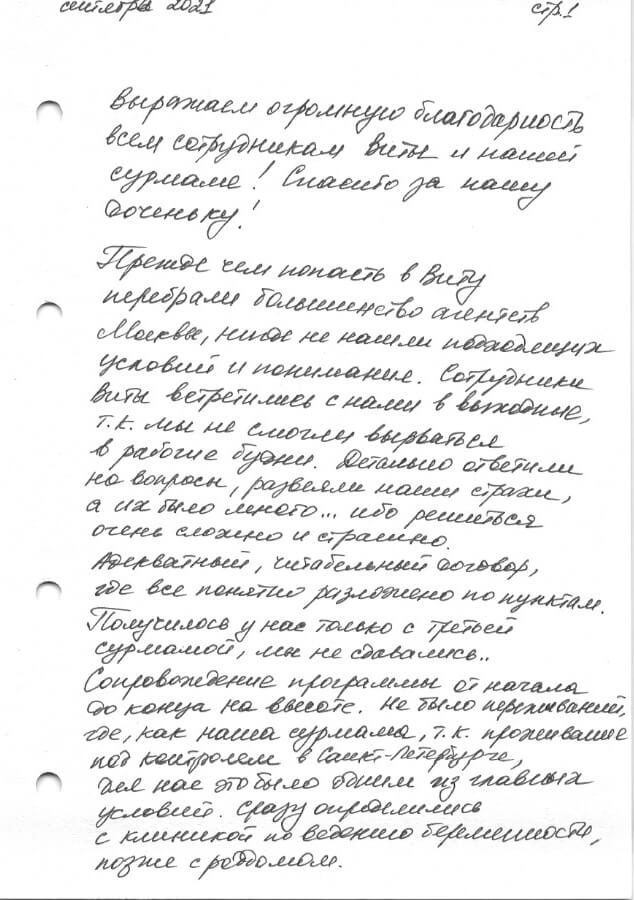 сентябрь 2021 стр.1
Выражаем огромную благодарность
всем сотрудникам Виты и нашей
сурмаме! Спасибо за нашу
доченьку!
Прежде чем попасть в Виту
перебрали большинство агентств
Москвы, нигде не нашли подходящих
условий и понимание. Сотрудники
Виты встретились с нами в выходные,
т.к. мы не смогли вырваться
в рабочие будни. Детально ответили
на вопросы, развеяли наши страхи,
а их было много... ибо решиться
очень сложно и страшно.
Адекватный, читабельный договор,
где все понятно разложено по пунктам.
Получилось у нас только с третьей
сурмамой, мы не сдавались..
Сопровождение программы от начала
до конца на высоте. Не было переживаний,
где, как наша сурмама, т.к. проживание
под контролем в Санкт-Петербурге,
для нас это было одним из главных
условий. Сразу определились
с клиникой по ведению беременности,
позже с роддомом.